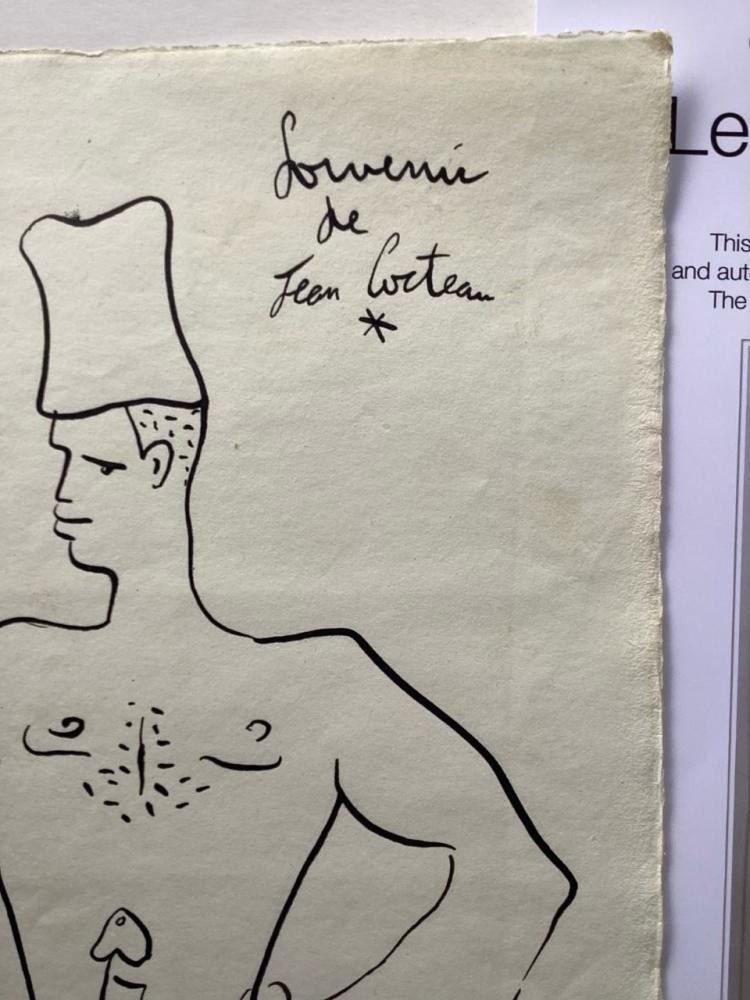 Souvenir
de
Jean Cocteau
*
Le
This
and aut
The